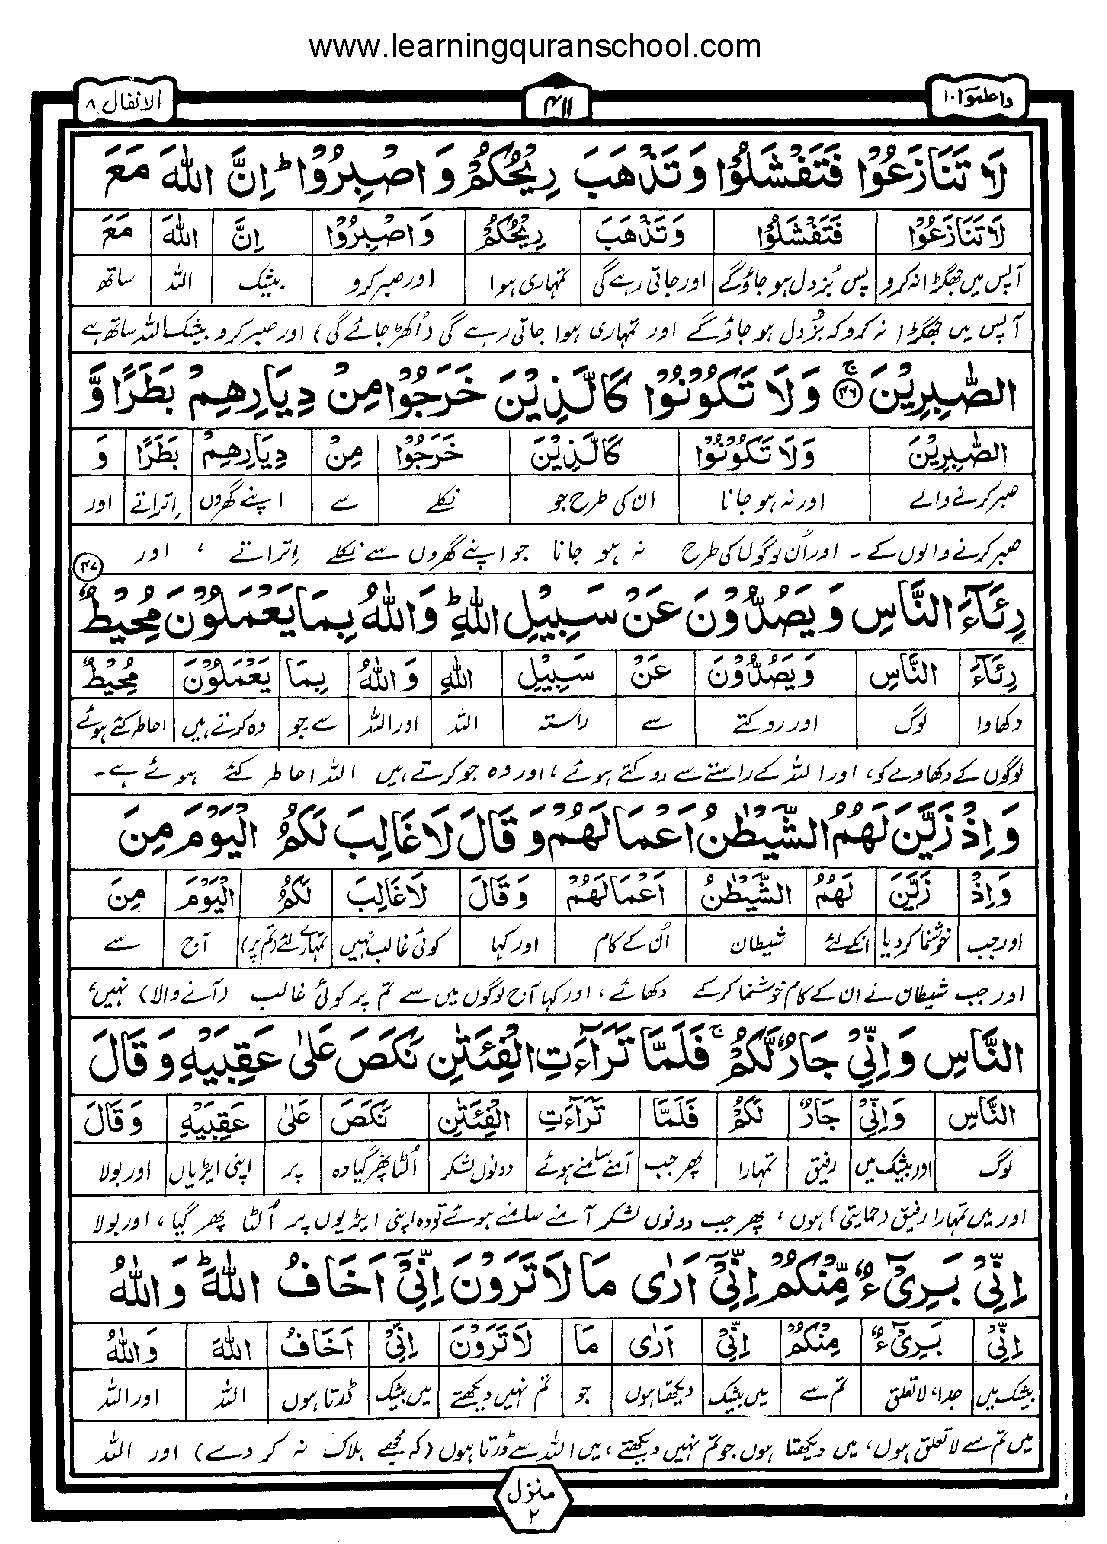 www.learningquranschool.com
واعلموا ۱۰
۴۱۱
الانفال ۸
لَا تَنَازَعُوْا فَتَفْشَلُوْا وَتَذْهَبَ رِيْحُكُمْ وَاصْبِرُوْا ؕ اِنَّ اللّٰهَ مَعَ
لَا تَنَازَعُوْا فَتَفْشَلُوْا وَتَذْهَبَ رِيْحُكُمْ وَاصْبِرُوْا اِنَّ اللّٰهَ مَعَ
آپس میں جھگڑا نہ کرو پس بزدل ہو جاؤ گے اور جاتی رہے گی تمہاری ہوا اور صبر کرو بیشک اللہ ساتھ
آپس میں جھگڑا نہ کرو کہ بزدل ہو جاؤ گے اور تمہاری ہوا جاتی رہے گی (اکھڑ جائے گی) اور صبر کرو بیشک اللہ ساتھ ہے
الصّٰبِرِيْنَ ۚ﴿۴۶﴾ وَلَا تَكُوْنُوْا كَالَّذِيْنَ خَرَجُوْا مِنْ دِيَارِهِمْ بَطَرًا وَّ
الصّٰبِرِيْنَ وَلَا تَكُوْنُوْا كَالَّذِيْنَ خَرَجُوْا مِنْ دِيَارِهِمْ بَطَرًا وَ
صبر کرنے والے اور نہ ہو جانا ان کی طرح جو نکلے سے اپنے گھروں اِتراتے اور
صبر کرنے والوں کے ۔ اور اُن لوگوں کی طرح نہ ہو جانا جو اپنے گھروں سے نکلے اِتراتے ، اور
رِئَآءَ النَّاسِ وَيَصُدُّوْنَ عَنْ سَبِيْلِ اللّٰهِ ؕ وَاللّٰهُ بِمَا يَعْمَلُوْنَ مُحِيْطٌ ﴿۴۷﴾
رِئَآءَ النَّاسِ وَيَصُدُّوْنَ عَنْ سَبِيْلِ اللّٰهِ وَاللّٰهُ بِمَا يَعْمَلُوْنَ مُحِيْطٌ
دکھاوا لوگ اور روکتے سے راستہ اللہ اور اللہ سے جو وہ کرتے ہیں احاطہ کئے ہوئے
لوگوں کے دکھاوے کو، اور اللہ کے راستے سے روکتے ہوئے ، اور وہ جو کرتے ہیں اللہ احاطہ کئے ہوئے ہے ۔
وَاِذْ زَيَّنَ لَهُمُ الشَّيْطٰنُ اَعْمَالَهُمْ وَقَالَ لَا غَالِبَ لَكُمُ الْيَوْمَ مِنَ
وَاِذْ زَيَّنَ لَهُمُ الشَّيْطٰنُ اَعْمَالَهُمْ وَقَالَ لَا غَالِبَ لَكُمُ الْيَوْمَ مِنَ
اور جب خوشنما کر دیا انکے لئے شیطان اُن کے کام اور کہا کوئی غالب نہیں تمہارے لئے (تم پر) آج سے
اور جب شیطان نے ان کے کام خوشنما کر کے دکھائے ، اور کہا آج لوگوں میں سے تم پر کوئی غالب (آنے والا) نہیں،
النَّاسِ وَاِنِّيْ جَارٌ لَّكُمْ ۚ فَلَمَّا تَرَآءَتِ الْفِئَتٰنِ نَكَصَ عَلٰى عَقِبَيْهِ وَقَالَ
النَّاسِ وَاِنِّيْ جَارٌ لَكُمْ فَلَمَّا تَرَآءَتِ الْفِئَتٰنِ نَكَصَ عَلٰى عَقِبَيْهِ وَقَالَ
لوگ اور بیشک میں رفیق تمہارا پھر جب آمنے سامنے ہوئے دونوں لشکر اُلٹا پھر گیا وہ پر اپنی ایڑیاں اور بولا
اور میں تمہارا رفیق (حمایتی) ہوں ، پھر جب دونوں لشکر آمنے سامنے ہوئے تو وہ اپنی ایڑیوں پر اُلٹا پھر گیا ، اور بولا
اِنِّيْ بَرِيْٓءٌ مِّنْكُمْ اِنِّيْٓ اَرٰى مَا لَا تَرَوْنَ اِنِّيْٓ اَخَافُ اللّٰهَ ؕ وَاللّٰهُ
اِنِّيْ بَرِيْٓءٌ مِنْكُمْ اِنِّيْ اَرٰى مَا لَا تَرَوْنَ اِنِّيْ اَخَافُ اللّٰهَ وَاللّٰهُ
بیشک میں جدا، لاتعلق تم سے میں بیشک دیکھتا ہوں جو تم نہیں دیکھتے میں بیشک ڈرتا ہوں اللہ اور اللہ
میں تم سے لاتعلق ہوں، میں دیکھتا ہوں جو تم نہیں دیکھتے ، میں اللہ سے ڈرتا ہوں (کہ مجھے ہلاک نہ کر دے) اور اللہ
منزل
۲